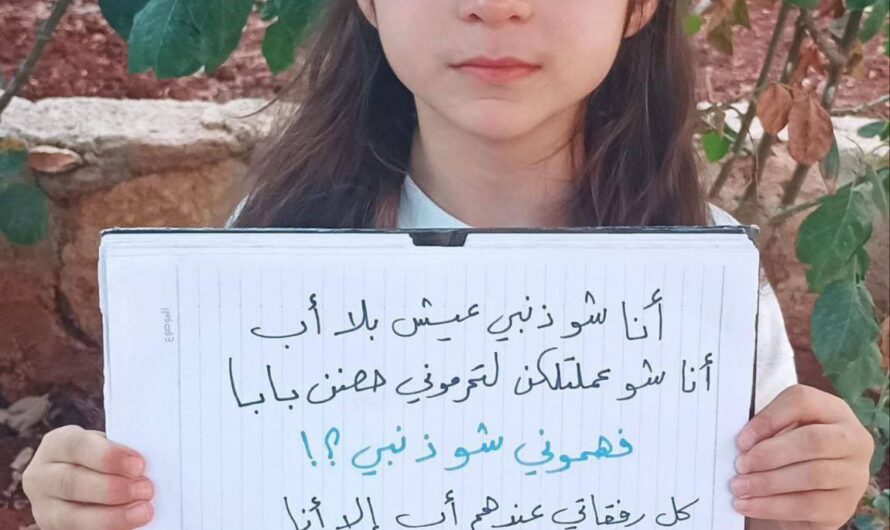 الموضوع
أنا شو ذنبي عيش بلا أب
أنا شو عملتلكن لتحرموني حضن بابا
فهموني شو ذنبي ؟!
كل رفقاتي عندهم أب إلا أنا